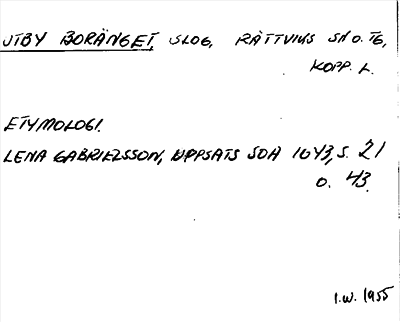 UTBY BORÄNGET, SLOG, RÄTTVIKS SN O. TG,
KOPP. L.
ETYMOLOGI.
LENA GABRIELSSON, UPPSATS SOA 1043, S. 21
O. 43.
I.W. 1955